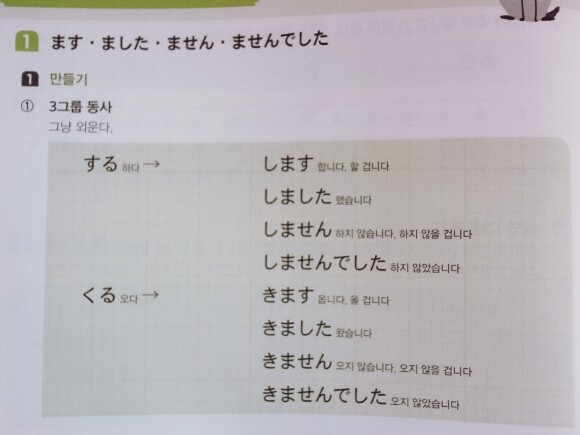 1 ます・ました・ません・ませんでした
1 만들기
① 3그룹 동사
그냥 외운다.
する 하다 → します 합니다, 할 겁니다
しました 했습니다
しません 하지 않습니다, 하지 않을 겁니다
しませんでした 하지 않았습니다
くる 오다 → きます 옵니다, 올 겁니다
きました 왔습니다
きません 오지 않습니다, 오지 않을 겁니다
きませんでした 오지 않았습니다